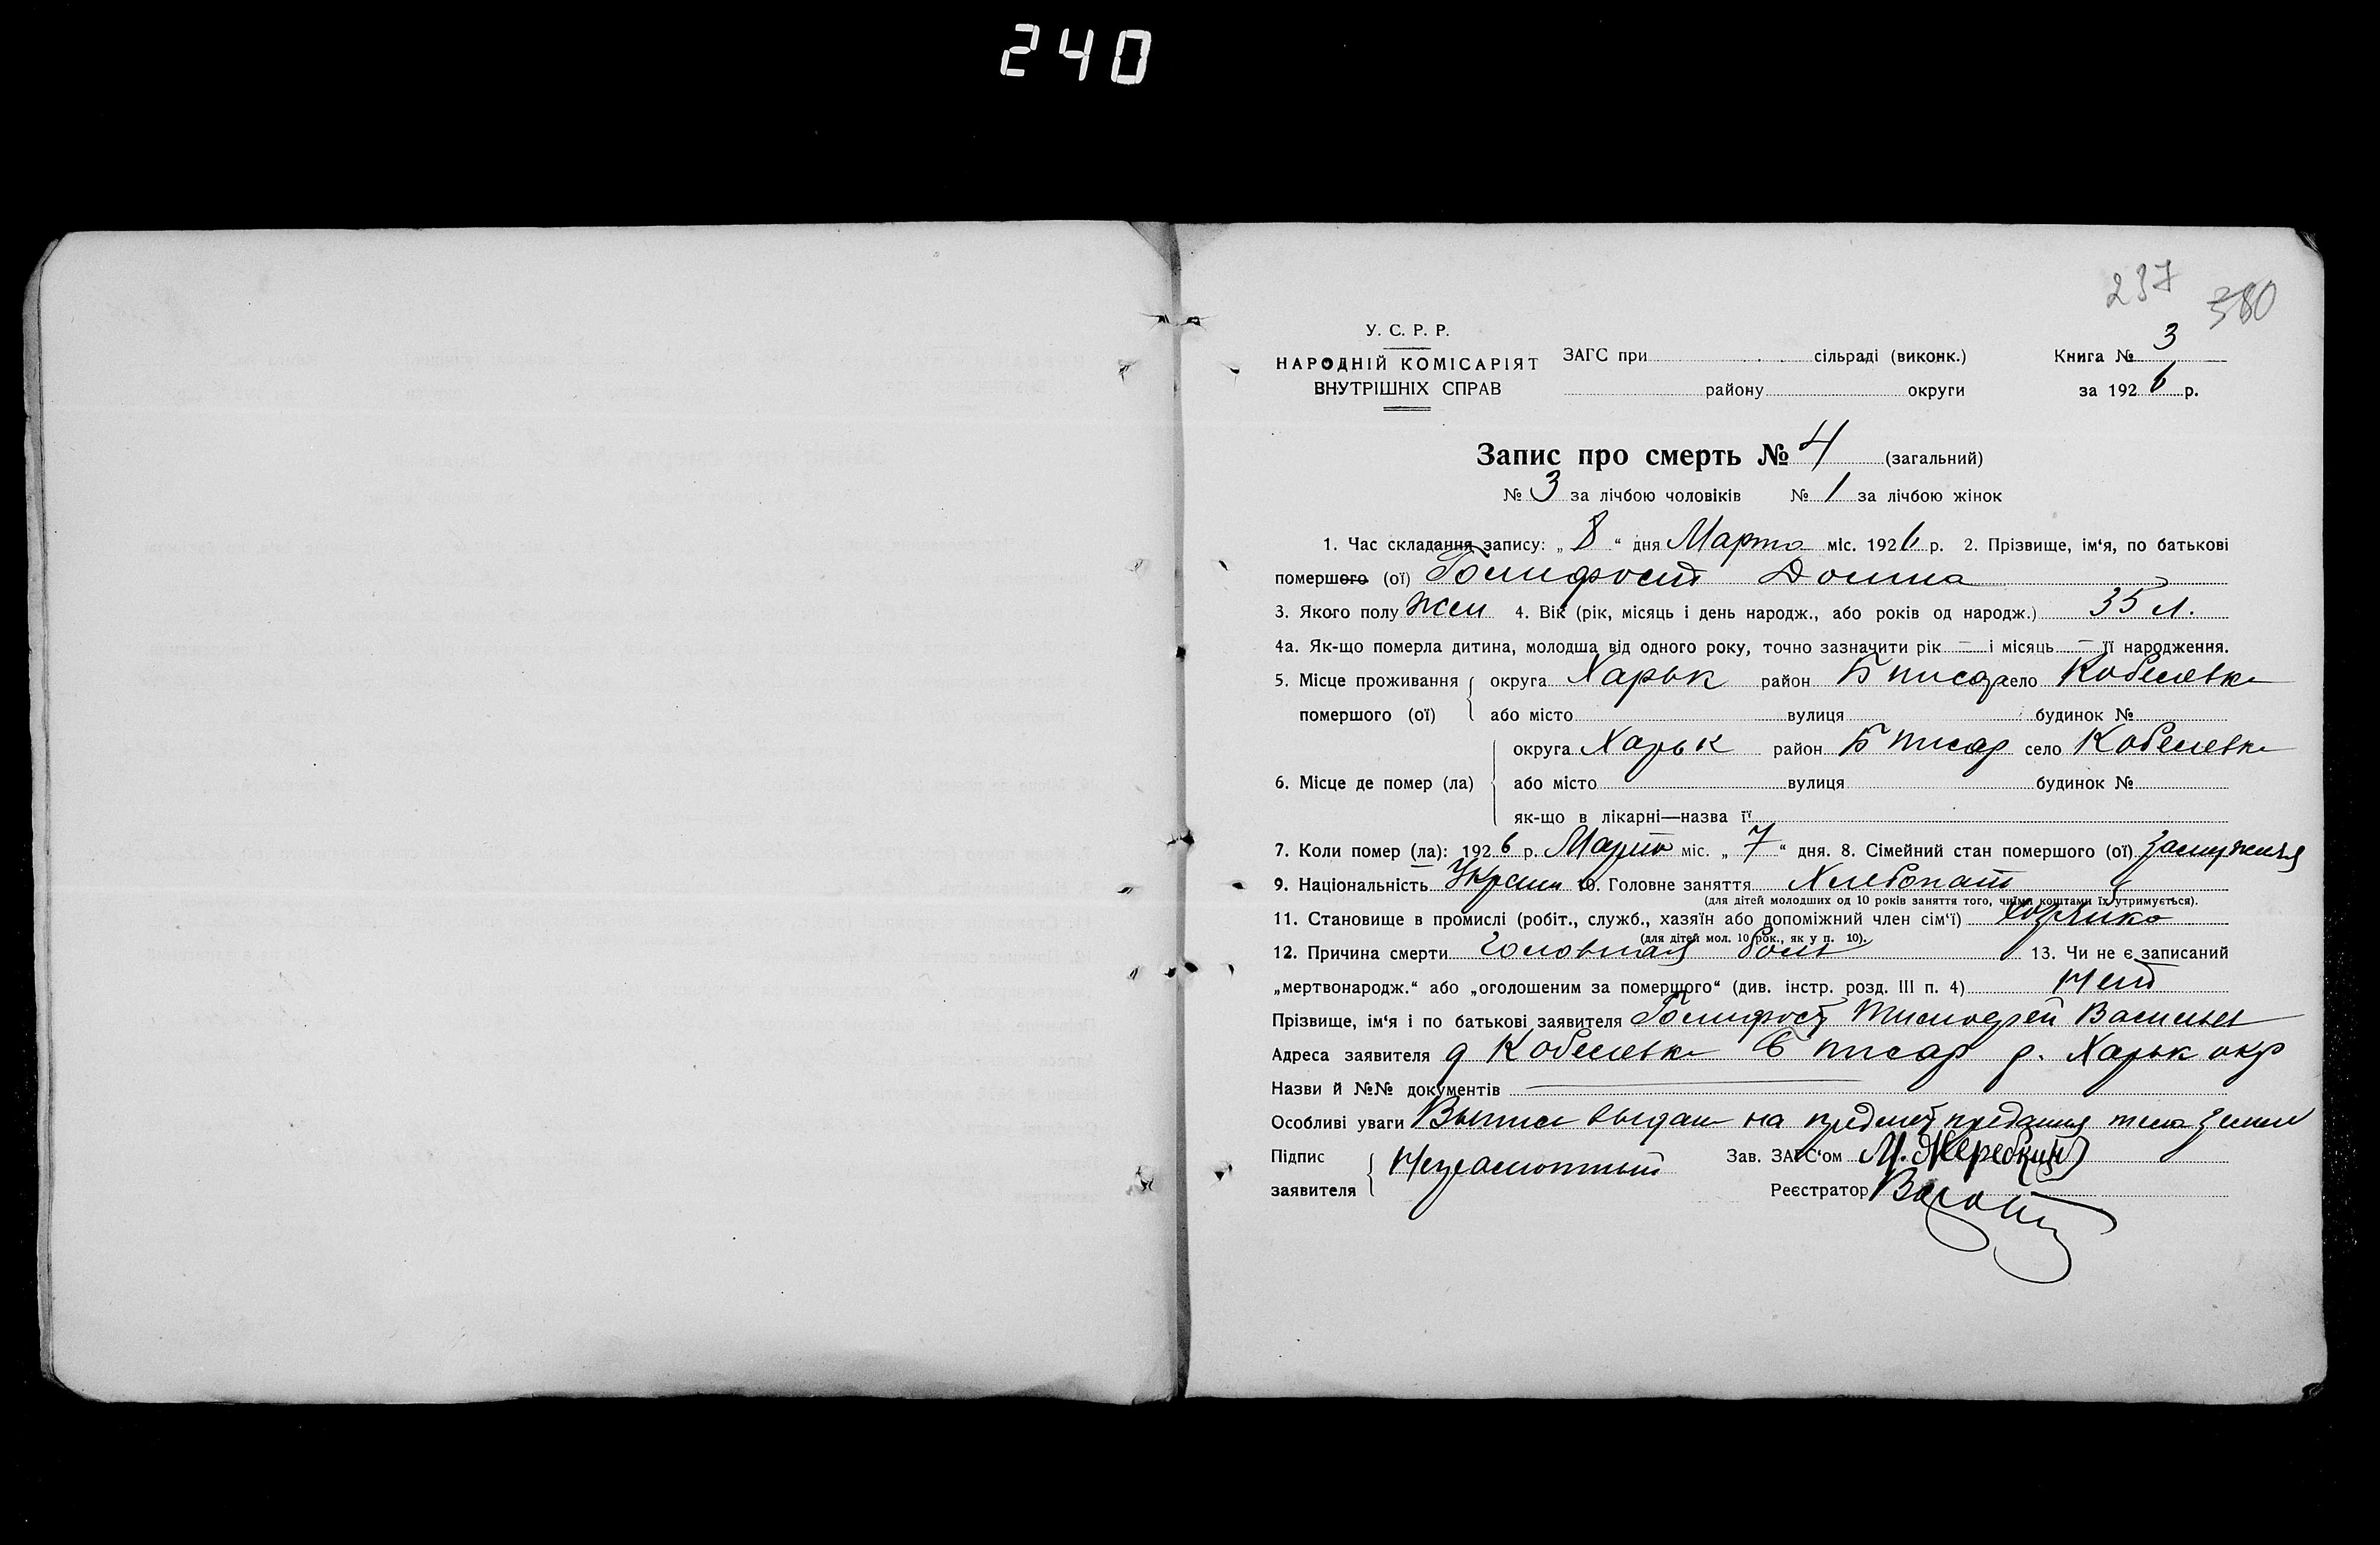 240
237 380
У. С. Р. Р.
НАРОДНІЙ КОМІСАРІЯТ
ВНУТРІШНІХ СПРАВ
ЗАГС при сільраді (виконк.)
району округи
Книга № 3
за 1926 р.
Запис про смерть № 4 (загальний)
№ 3 за лічбою чоловіків № 1 за лічбою жінок
1. Час складання запису: „ 8 “ дня Марта міс. 1926 р. 2. Прізвище, ім‘я, по батькові
помершого (ої) Домна
3. Якого полу Жен 4. Вік (рік, місяць і день народж., або років од народж.) 35 л.
4а. Як-що померла дитина, молодша від одного року, точно зазначити рік — і місяць — її народження.
5. Місце проживання округа Харьк район Б писар село Кобелевка
помершого (ої) або місто вулиця будинок №
округа Харьк район Б писар село Кобелевка
6. Місце де помер (ла) або місто вулиця будинок №
як-що в лікарні—назва її
7. Коли помер (ла): 1926 р. Марта міс. „ 7 “ дня. 8. Сімейний стан помершого (ої) замужняя
9. Національність Украин 10. Головне заняття Хлебопаш
(для дітей молодших од 10 років заняття того, чиїми коштами їх утримується).
11. Становище в промислі (робіт., служб., хазяїн або допоміжний член сім‘ї) хозяйка
(для дітей мол. 10 рок., як у п. 10).
12. Причина смерти головная боль 13. Чи не є записаний
„мертвонародж.“ або „оголошеним за померщого“ (див. інстр. розд. III п. 4) нет
Прізвище, ім‘я і по батькові заявителя Тимофей Васильев
Адреса заявителя д Кобелевка Б писар р. Харьк окр
Назви й №№ документів
Особливі уваги Выписи выдан на предмет предания тела земле
Підпис заявителя Неграмотный
Зав. ЗАГС‘ом М. Жеребкин
Реєстратор